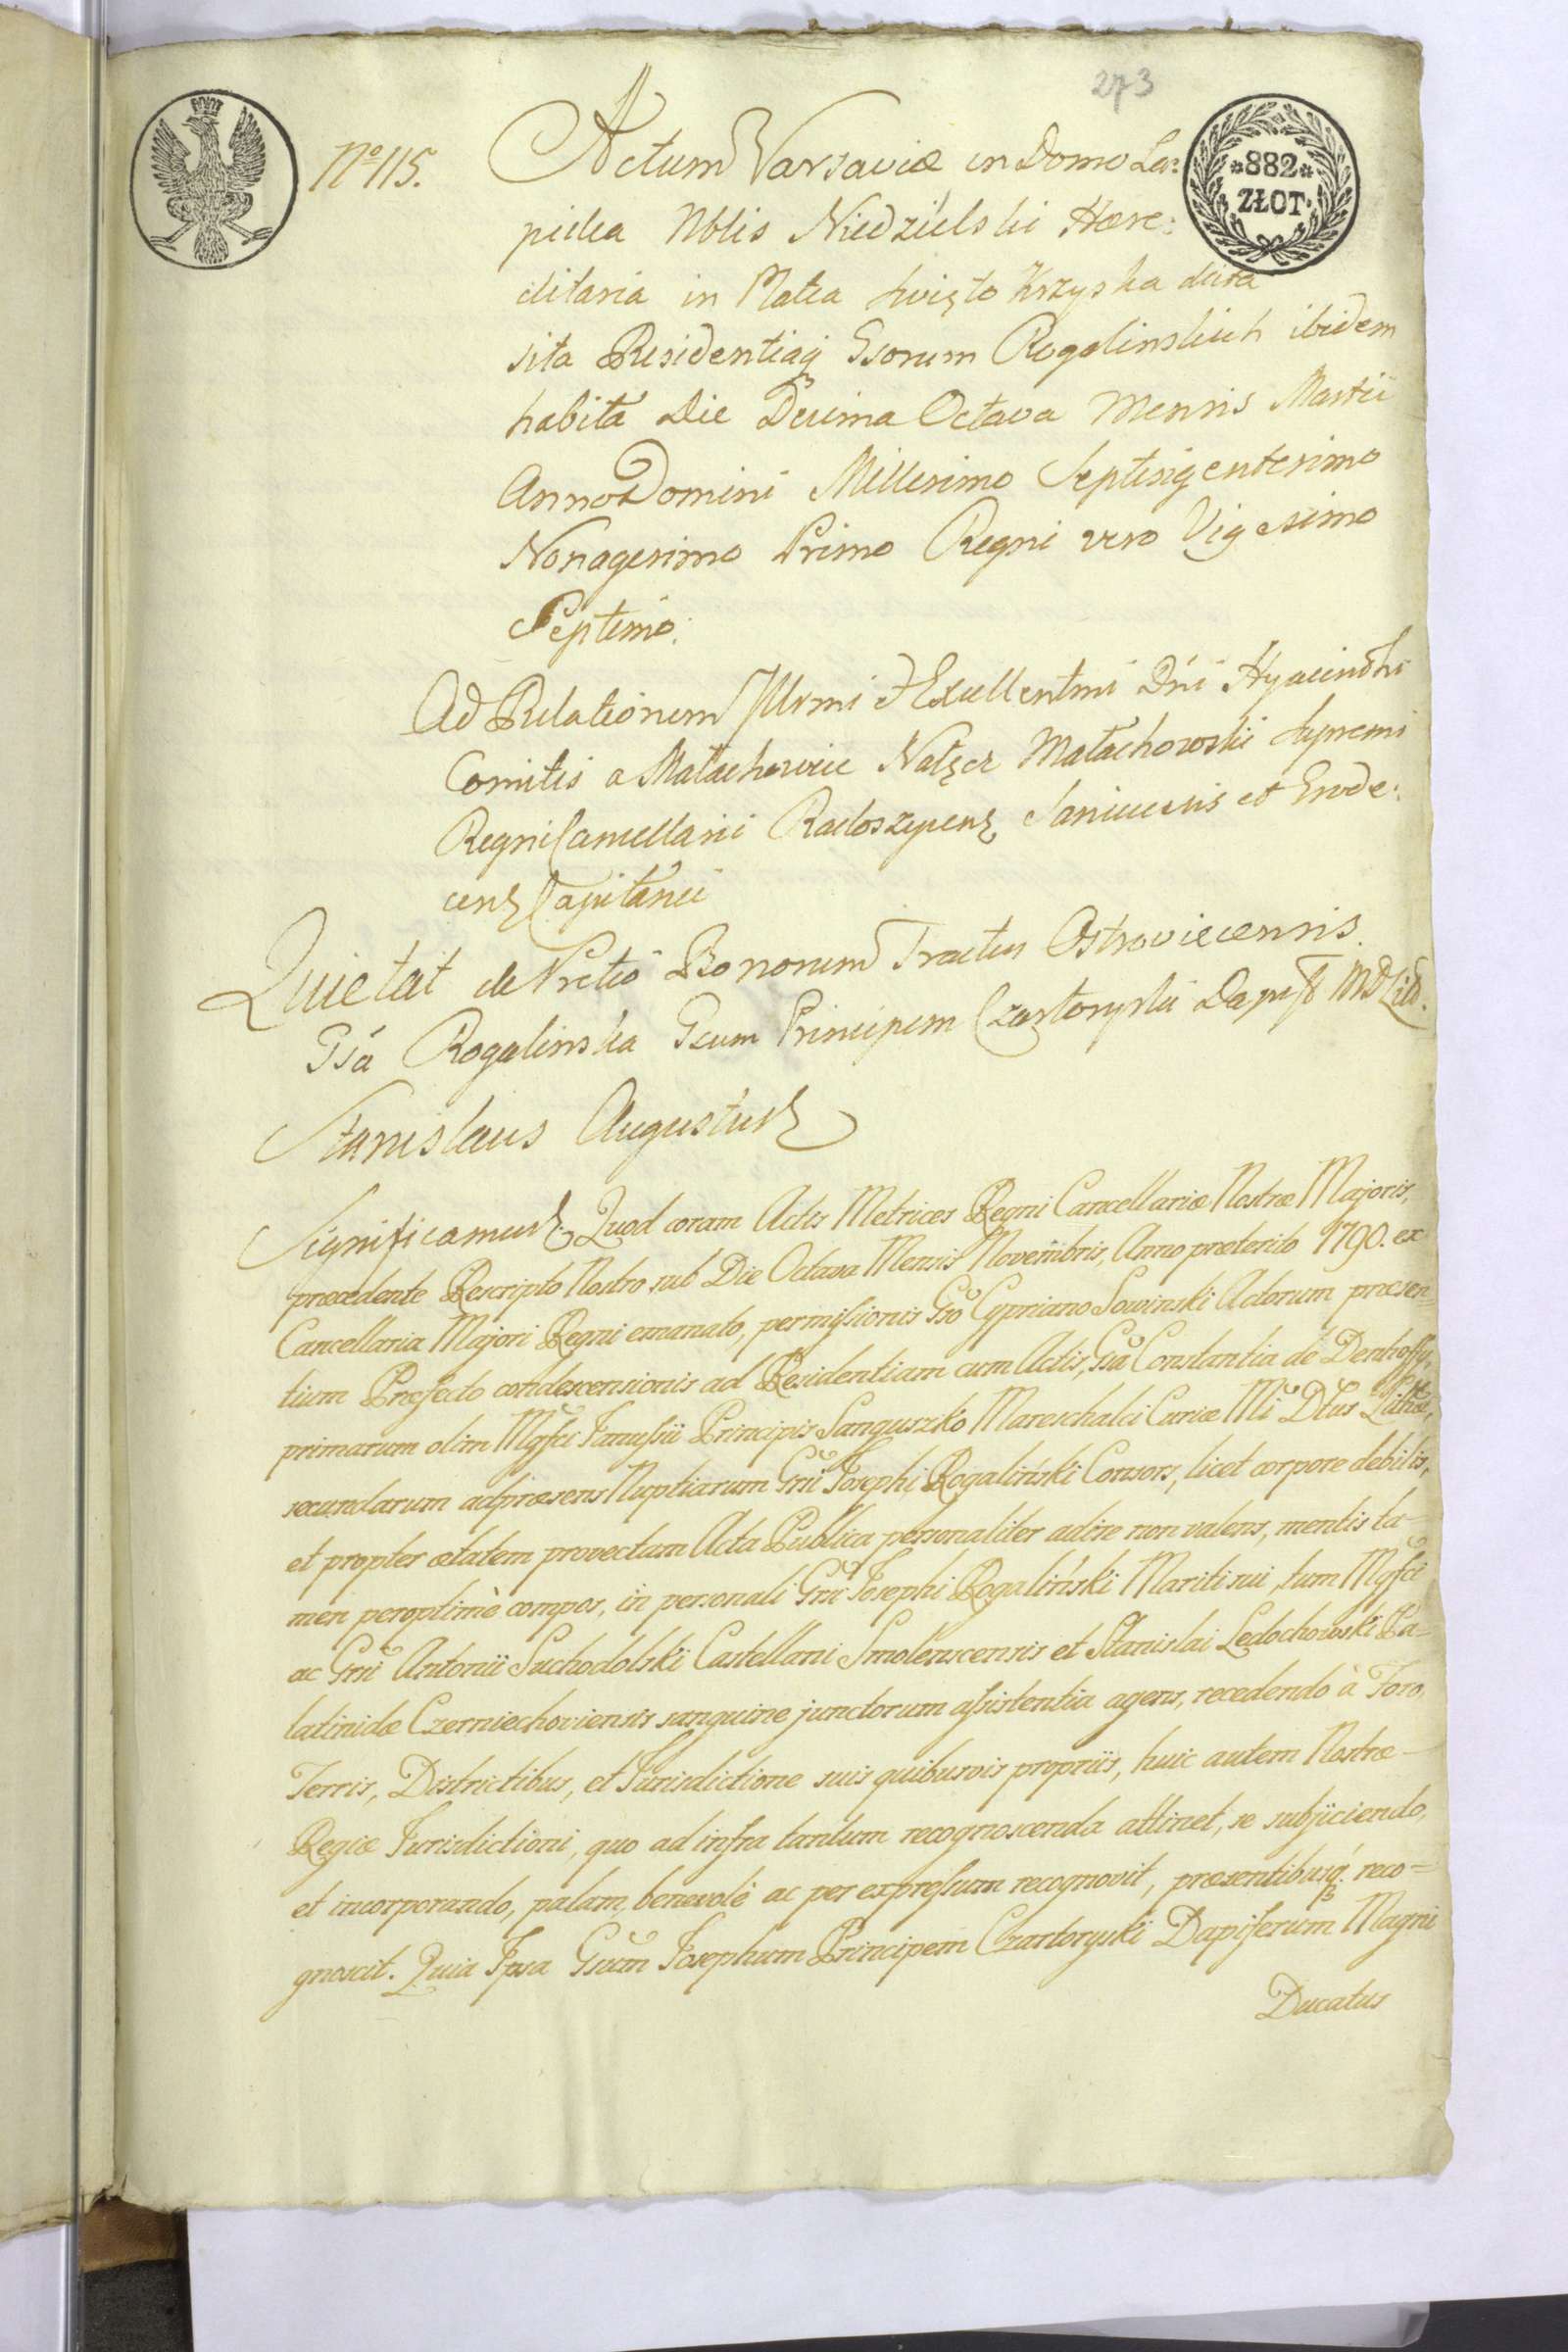 273
No 115.
*882*
ZŁOT.
Actum Varsaviæ in Domo La:
pidea Nblis Niedzielski Hære:
ditaria in Platea Święto Krzyska dicta
sita Residentiaq Gsorum Rogalinskich ibidem
habita Die Decima Octava Mensis Martii
Anno Domini Millesimo Septisigentesimo
Nonagesimo Primo Regni vero Vigesimo
Septimo.
Ad Relationem Illrmi & Excellentmi Dni Hyacinthi
Comitis a Małachowice Nałęcz Małachowski Supremi
Regni Cancellarii Radoszycens Sanicensis et Grode:
cens Capitanei
Quietat de Pretio Bonorum Tractus Ostroviecensis.
Gsa Rogalinska Gsum Principem Czartoryski Dapif MDLitt.
Stanislaus Augustus
Significamus. Quod coram Actis Metrices Regni Cancellariæ Nostræ Majoris,
præcedente Rescripto Nostro sub Die Octava Mensis Novembris, Anno præterito 1790. ex
Cancellaria Majori Regni emanato, permissionis Gso Cypriano Sowinski Actorum præsen=
tium Præfecto condescensionis ad Residentiam cum Actis, Gsa Constantia de Denhoffy,
primarum olim Mgfci Janussii Principis Sanguszko Mareschalci Curiæ Mi Dtus Litthæ,
secundarum ad præsens Nuptiarum Gsi Josephi Rogaliński Consors, licet corpore debilis,
et propter ætatem provectam Acta Publica personaliter adire non valens, mentis ta-
men peroptimè compos, in personali Gsi Josephi Rogaliński Mariti sui, tum Mgfci
ac Gsi Antonii Suchodolski Castellani Smolenscensis et Stanislai Ledochowski Pa=
latinidæ Czerniechoviensis sanguine junctorum assistentia agens, recedendo à Foro,
Terris, Districtibus, et Jurisdictione suis quibusvis propriis, huic autem Nostræ-
Regiæ Jurisdictioni, quo ad infra tantum recognoscenda attinet, se subjiciendo,
et incorporando, palam, benevolè ac per expressum recognovit, præsentibusq. reco=
gnoscit. Quia Ipsa Gsum Josephum Principem Czartoryski Dapiferum Magni
Ducatus